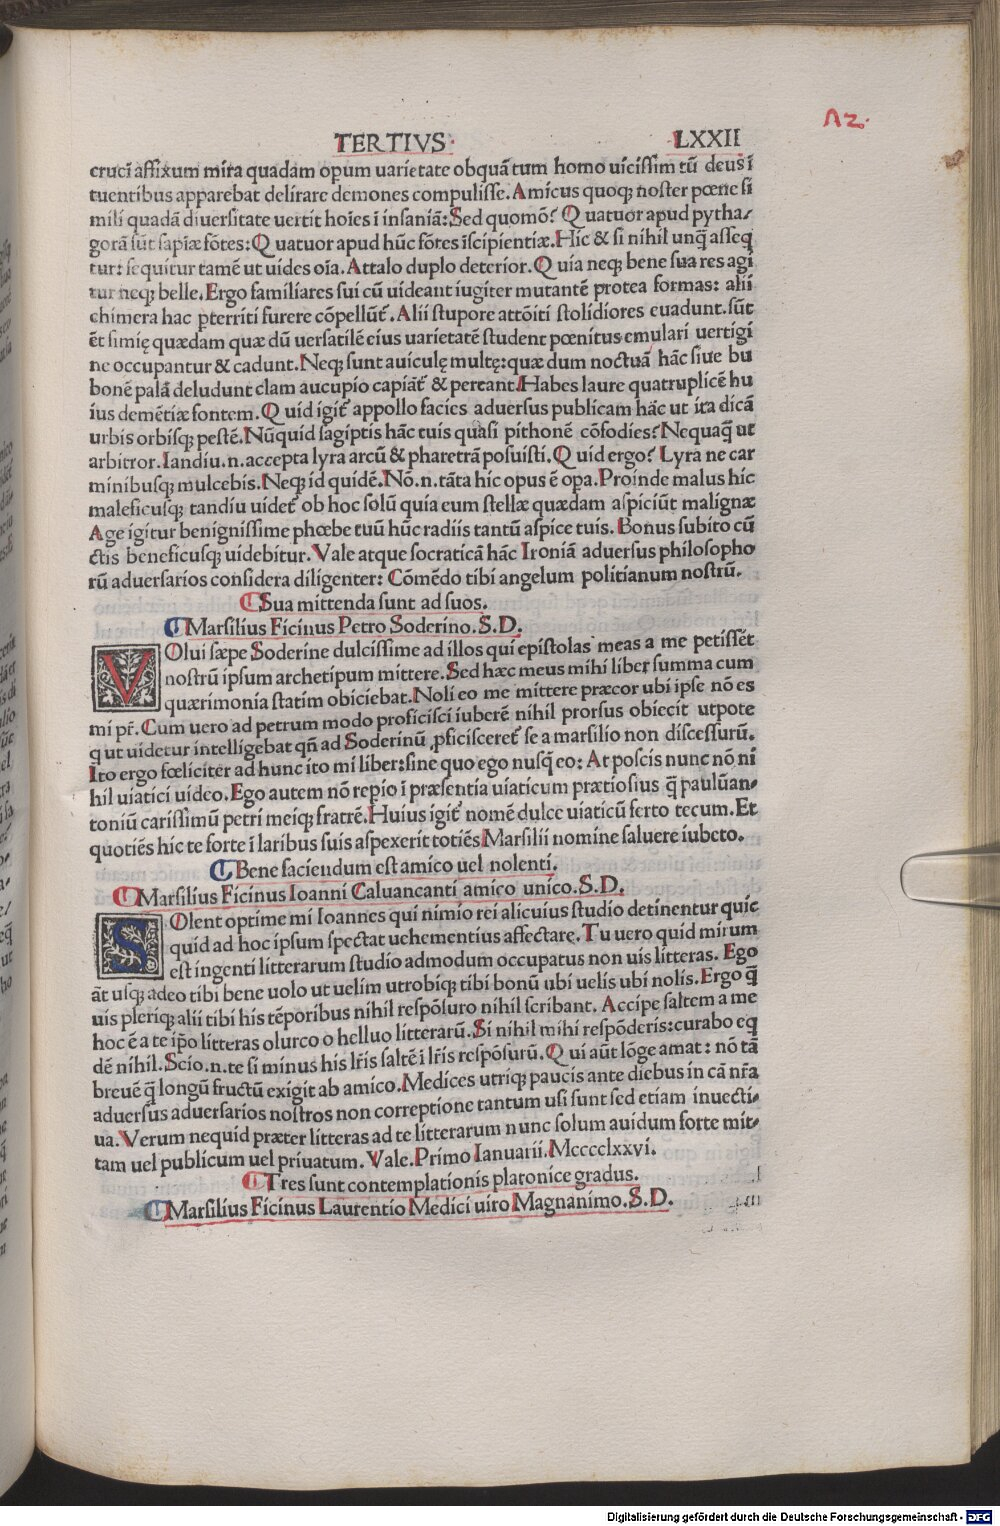 TERTIVS. LXXII
crucī affixum mira quadam opum uarietate obquātum homo uicissim tū deus ī
tuentibus apparebat delirare demones compulisse. Amicus quoqꝫ noster pœne si
mili quadā diuersitate uertit hoīes ī insaniā: Sed quomō? Quatuor apud pytha-
gorā sūt sapīæ fōtes: Quatuor apud hūc fōtes īscipientiæ. Hic & si nihil unq̄ asseq
tur: sequitur tamē ut uides oīa. Attalo duplo deterior. Quia neqꝫ bene sua res agi
tur neqꝫ belle. Ergo familiares sui cū uideant iugiter mutantē protea formas: alii
chimera hac ꝑterriti furere cōpellūt̄. Alii stupore attōiti stolidiores euadunt. sūt
ēt simię quædam quæ dū uersatilē eius uarietatē student pœnitus emulari uertigi
ne occupantur & cadunt. Neqꝫ sunt auiculę multę: quæ dum noctuā hāc siue bu
bonē palā deludunt clam aucupio capiāt̄ & pereant. Habes laure quatruplicē hu
ius demētiæ fontem. Quid igit̄ appollo facies aduersus publicam hāc ut ita dicā
urbis orbisqꝫ pestē. Nūquid sagiptis hāc tuis quasi pithonē cōfodies? Nequaq̄ ut
arbitror. Iandiu .n. accepta lyra arcū & pharetrā posuisti. Quid ergo? Lyra ne car
minibusqꝫ mulcebis. Neqꝫ id quidē. Nō .n. tāta hic opus ē oꝑa. Proinde malus hic
maleficusqꝫ tandiu uidet̄ ob hoc solū quia eum stellæ quædam aspiciūt malignæ
Age igitur benignissime phœbe tuū hūc radiis tantū aspice tuis. Bonus subito cū
ctis beneficusqꝫ uidebitur. Vale atque socraticā hāc Ironiā aduersus philosopho
rū aduersarios considera diligenter: Cōmēdo tibi angelum politianum nostrū.
Sua mittenda sunt ad suos.
Marsilius Ficinus Petro Soderino. S. D.
VOlui sæpe Soderine dulcissime ad illos qui epistolas meas a me petissēt
nostrū ipsum archetipum mittere. Sed hæc meus mihi liber summa cum
quærimonia statim obiciebat. Noli eo me mittere præcor ubi ipse nō es
mi pr̄. Cum uero ad petrum modo proficisci iuberē nihil prorsus obiecit utpote
q ut uidetur intelligebat qn̄ ad Soderinū ꝓficisceret̄ se a marsilio non discessurū.
Ito ergo fœliciter ad hunc ito mi liber: sine quo ego nusq̄ eo: At poscis nunc nō ni
hil uiatici uideo. Ego autem nō repio ī præsentia uiaticum prætiosius q̄ paulūan-
toniū carissimū petri meiqꝫ fratrē. Huius igit̄ nomē dulce uiaticū ferto tecum. Et
quotiēs hic te forte ī laribus suis aspexerit totiēs Marsilii nomine saluere iubeto.
Bene faciendum est amico uel nolenti.
Marsilius Ficinus Ioanni Caluancanti amico unico. S. D.
SOlent optime mi Ioannes qui nimio rei alicuius studio detinentur quic
quid ad hoc ipsum spectat uehementius affectare. Tu uero quid mirum
est ingenti litterarum studio admodum occupatus non uis litteras. Ego
āt usqꝫ adeo tibi bene uolo ut uelim utrobiqꝫ tibi bonū ubi uelis ubi nolis. Ergo q̄
uis pleriqꝫ alii tibi his tēporibus nihil respōsuro nihil scribant. Accipe saltem a me
hoc ē a te ip̄o litteras olurco o helluo litterarū. Si nihil mihi respōderis: curabo eq
dē nihil. Scio .n. te si minus his lr̄is saltē ī lr̄is respōsurū. Qui aūt lōge amat: nō tā
breuē q̄ longū fructū exigit ab amico. Medices utriqꝫ paucis ante diebus in cā nr̄a
aduersus aduersarios nostros non correptione tantum usi sunt sed etiam inuecti-
ua. Verum nequid præter litteras ad te litterarum nunc solum auidum forte mit-
tam uel publicum uel priuatum. Vale. Primo Ianuarii. Mcccclxxvi.
Tres sunt contemplationis platonice gradus.
Marsilius Ficinus Laurentio Medici uiro Magnanimo. S. D.
Digitalisierung gefördert durch die Deutsche Forschungsgemeinschaft - DFG